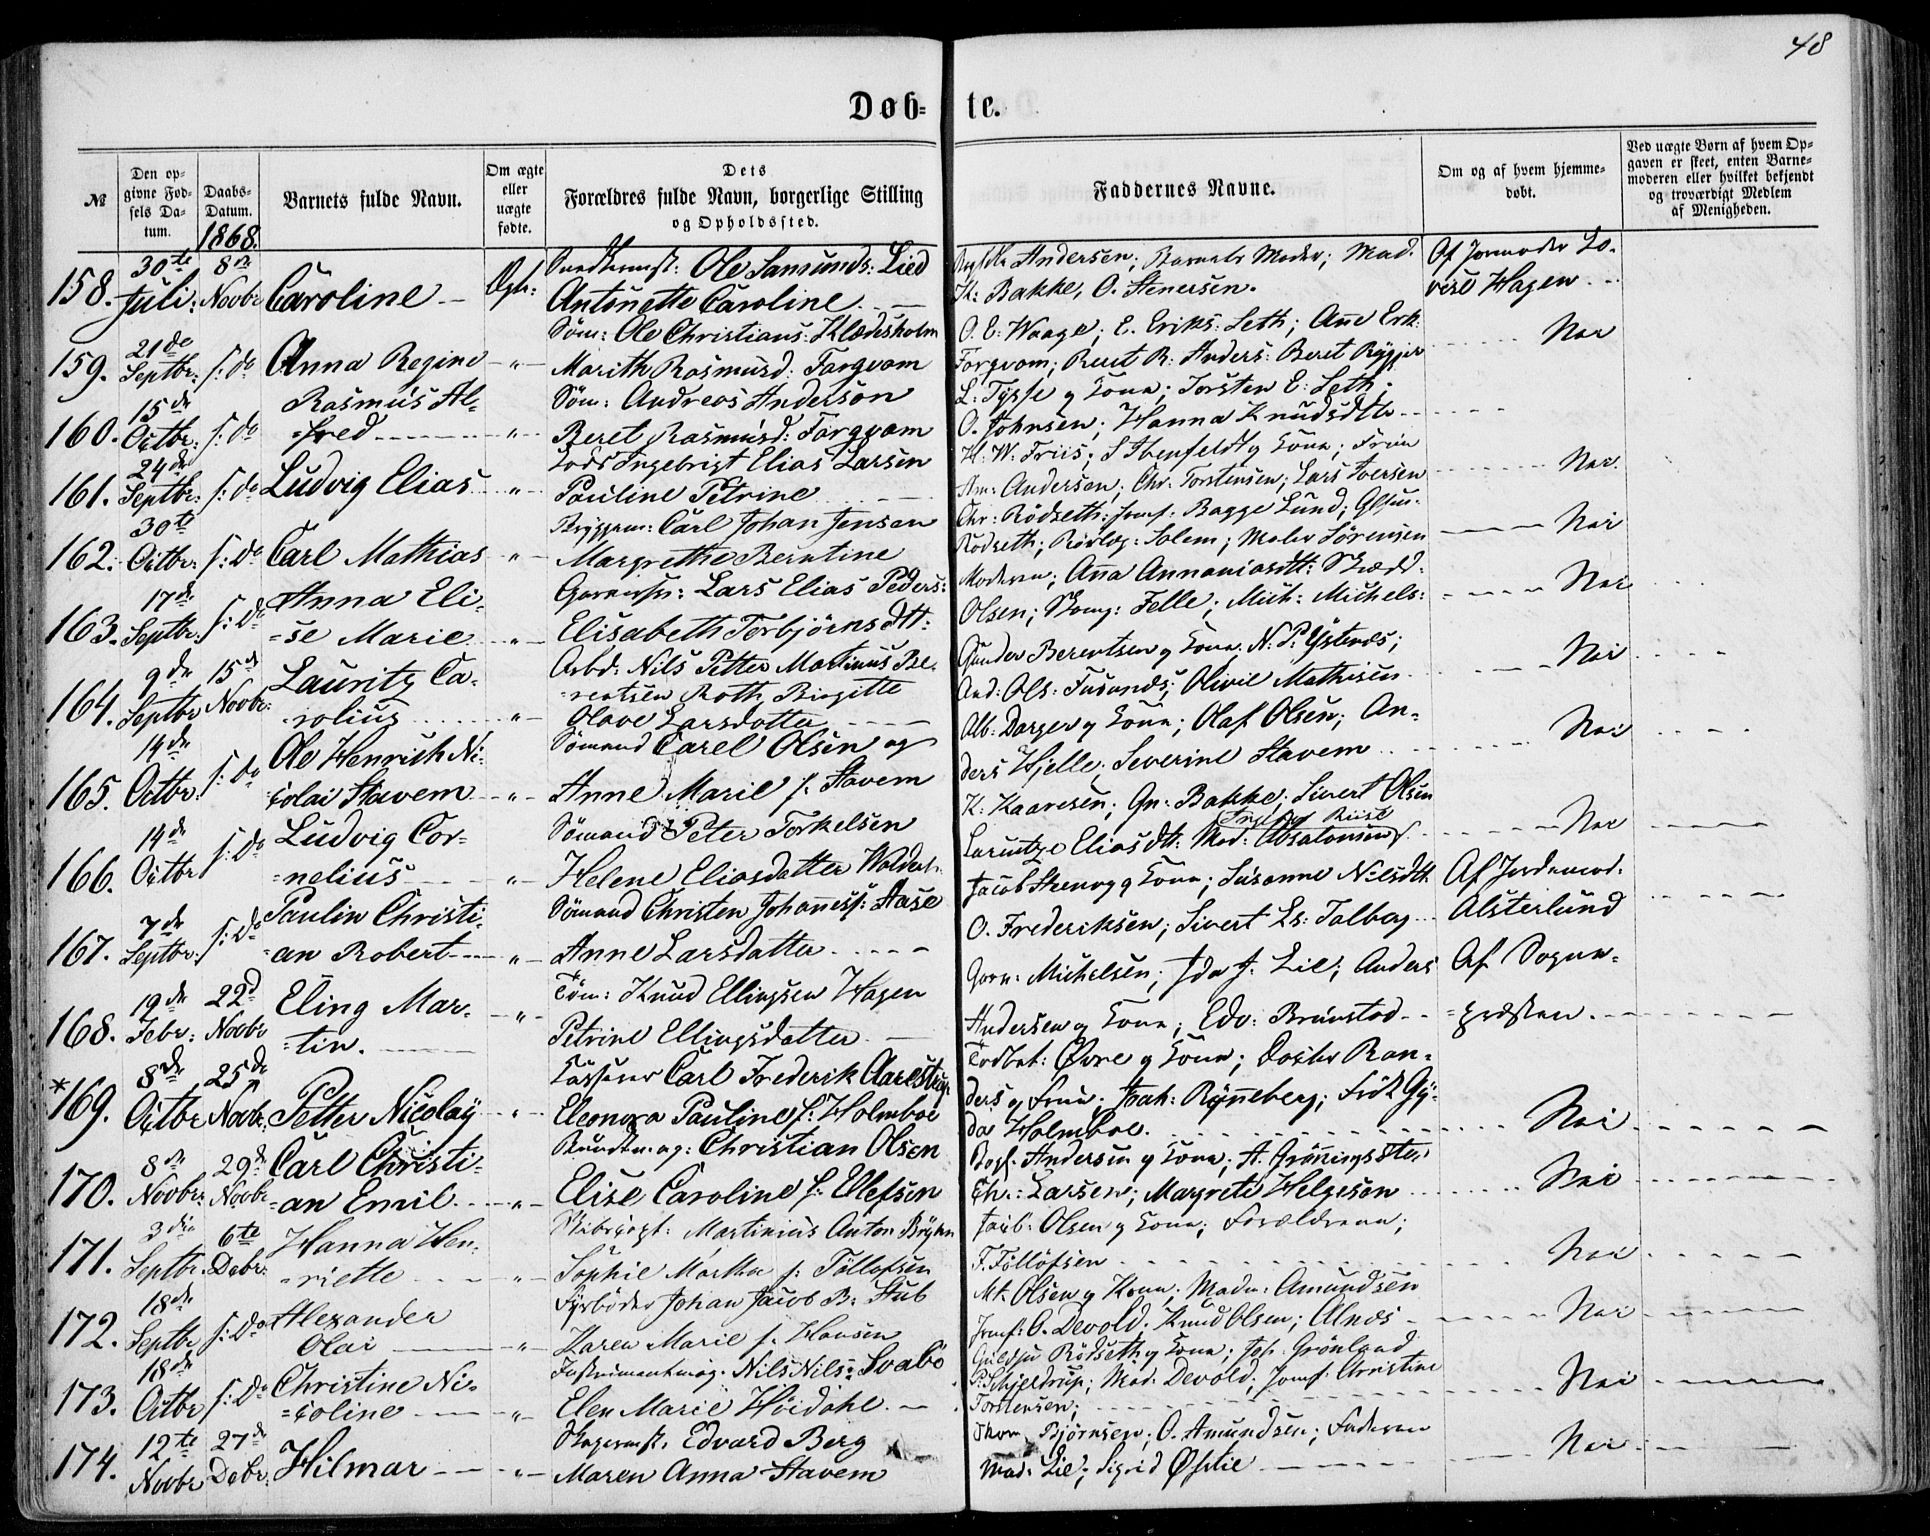 48
Døb=te.
№
Den op-
givne Fød-
sels Da-
tum.
Daabs-
Datum.
1868.
Barnets fulde Navn.
Om ægte
eller
uægte
fødte.
Dets
Forældres fulde Navn, borgerlige Stilling
og Opholdssted.
Faddernes Navne.
Om og af hvem hjemme-
døbt.
Ved uægte Børn af hvem Op-
gaven er skeet, enten Barne-
moderen eller hvilket bekjendt
og troværdigt Medlem
af Menigheden.
158. 30te Juli. 8de Novbr Caroline Ægte:
Ole Samunds: Lied
Antonette Caroline
Andersen; Barnets Moder; Mad.
Bakke, O. Stenersen.
Af Jormoder Lo-
vise Hagen
159. 21de Septbr: s: Do Anna Regine "
Søm: Ole Christians: Klædesholm
Marith Rasmusd: Torgvom
O. E: Waage; E. Eriks: Leth; Ane Erk:
Torgvom; Knut R: Anders: Beret
Nei
160. 15de Octbr: s: do Rasmus Al-
=fred "
Søm: Andreas Anderson
Beret Rasmusd: Torgvom
L: Tysse og Kone; Torsten E: Leth;
O. Johnsen; Hanna Knudsdtr
161. 24de Septbr: s: do Ludvig Elias "
Lods Ingebrigt Elias Larsen
Pauline Petrine
H. W. Friis; og Kone; Frue
Andersen; Chr. Torstensen; Lars Iversen
Nei
162. 30te Octbr: s: Do Carl Mathias "
Bryggem: Carl Johan Jensen
Margrethe Berntine
Chr: Rödseth; Jomf: Bagge Lund;
Rödseth; Solem; Maler Sörensen
Nei
163. 17de Septbr: s: Do Anna Eli-
=se Marie "
Lars Elias Peders:
Elisabeth Torbjørnsdtt:
Moderen; Aña Annaniasdtt:
Olsen; Felle; Mich: Michels:
Nei
164. 9de Septbr 15de Novbr: Lauritz Ca-
=rolius "
Arbd: Nils Petter Martinus Be-
=rentsen Roth, Birgitte
Olave Larsdatter
Gunder Berentsen og Kone, N. P. Ystenes;
And: Ols: Olivie Mathisen
Nei
165. 14de Octbr: s: do Ole Henrich Ni-
colai Stavem "
Sömand Carel Olsen og
Anne Marie f. Stavem
Alb: Dorger og Kone; Olaf Olsen; An-
ders Hjelle; Severine Stavem
Nei
166. 14de Octbr s: Do Ludvig Cor-
=nelius "
Sömand Peter Torkelsen
Helene Eliasdatter
K. Kaaresen; Gn: Bakke; Sivert Olsen
Laruntze Eliasdtt. Mad: Absalonsen
Nei
167. 7de Septbr: s: Do Paulin Christi-
an Robert "
Sömand Christen Johaness: Aase
Anne Larsdatter
Jacob og Kone; Susanne Nilsdtt.
O. Frederiksen; Sivert Ls: Talberg
Af Jordemod.
Alsterlund
168. 19de Febr: 22d Novbr Eling Mar-
=tin. "
Töm: Knud Ellingsen Hagen
Petrine Ellingsdatter
Michelsen; Ida J. Lie; Anders
Andersen og Kone; Edv: Brunstad
Af Sogne-
=præsten.
*169. 8de Octbr 25de Novbr: Petter Nicolay "
Kasserer Carl Frederik Aarestrup
Eleonora Pauline f: Holmboe
Øvre og Kone; Doctor Ran-
ders og Frue; Rynneberg; Frøk. Gy-
da Holmboe.
Nei
170. 8de Novbr: 29de Novbr Carl Christi-
an Emil "
Christian Olsen
Elise Caroline f: Ellefsen
Andersen og Kone; A. Grönningsæter
Larsen; Margrete Helgesen
Nei
171. 3die Septbr. 6te Debr: Hanna Hen-
=riette "
Martinius Anton Bryhn
Sophie Martha f: Töllofsen
Jacob: Olsen og Kone; Forældrene;
F. Töllöfsen
Nei
172. 18de Septbr s: Do Alexander
Olai "
Fyrböder Johan Jacob B: Stub
Karen Marie f. Hansen
Mt: Olsen og Kone; Madm: Amundsen
Jomf: O. Devold. Knud Olsen; Alnes
Nei
173. 18de Octbr s: Do Christine Ni-
=coline "
Instrumentmag. Nils Nils: Svabö
Elen Marie Höidahl.
Guldsm Rödseth og Kone; Joh. Grönland
P. Schjeldrup; Mad: Devold; Jomf: Christine
Torstensen;
Nei
174. 12te Novbr 27de Debr: Hilmar "
Edvard Berg
Maren Anna Stavem
Björnsen, O. Amundsen; Faderen
Mad: Lie; Sigrid Østlie
Nei